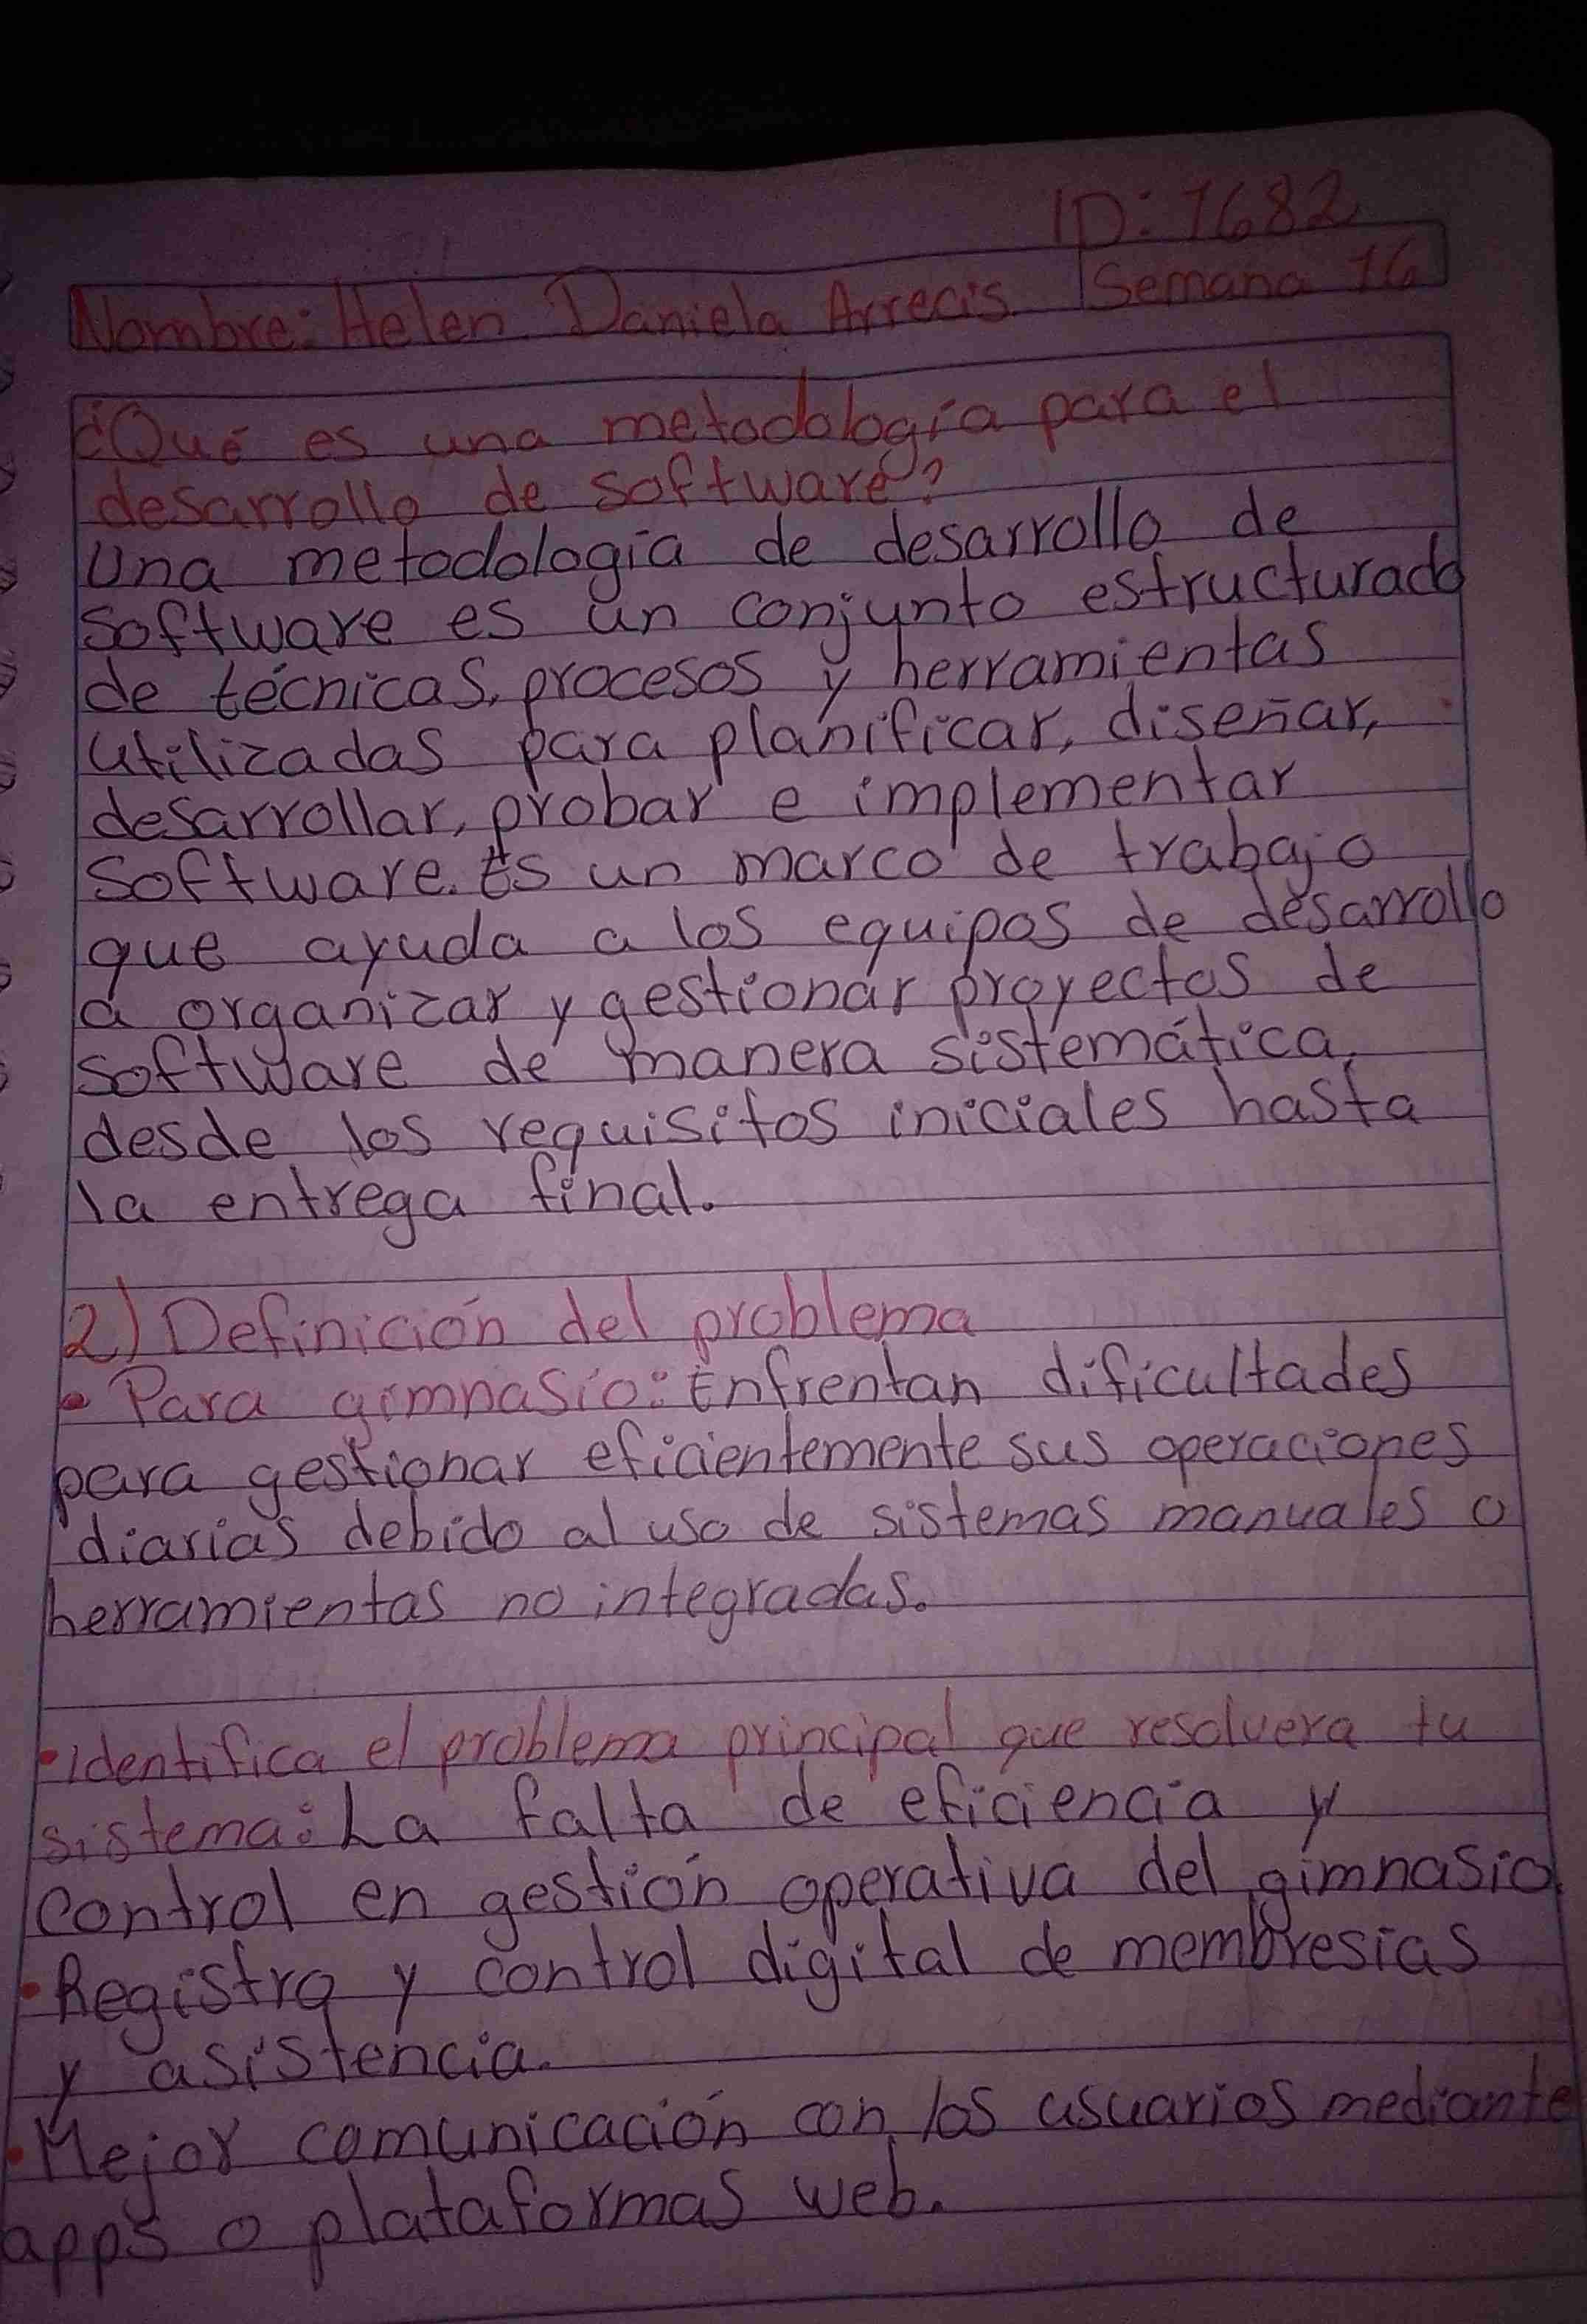 ID: 1682
Nombre: Helen Daniela Arrecis. Semana 16
¿Qué es una metodología para el
desarrollo de software?
Una metodología de desarrollo de
software es un conjunto estructurado
de técnicas, procesos y herramientas
utilizadas para planificar, diseñar,
desarrollar, probar e implementar
software. Es un marco de trabajo
que ayuda a los equipos de desarrollo
a organizar y gestionar proyectos de
software de manera sistemática,
desde los requisitos iniciales hasta
la entrega final.
2) Definición del problema
• Para gimnasio: Enfrentan dificultades
para gestionar eficientemente sus operaciones
diarias debido al uso de sistemas manuales o
herramientas no integradas.
• identifica el problema principal que resolvera tu
sistema: La falta de eficiencia y
control en gestión operativa del gimnasio.
• Registro y control digital de membresias
y asistencia.
• Mejor comunicación con los usuarios mediante
apps o plataformas web.